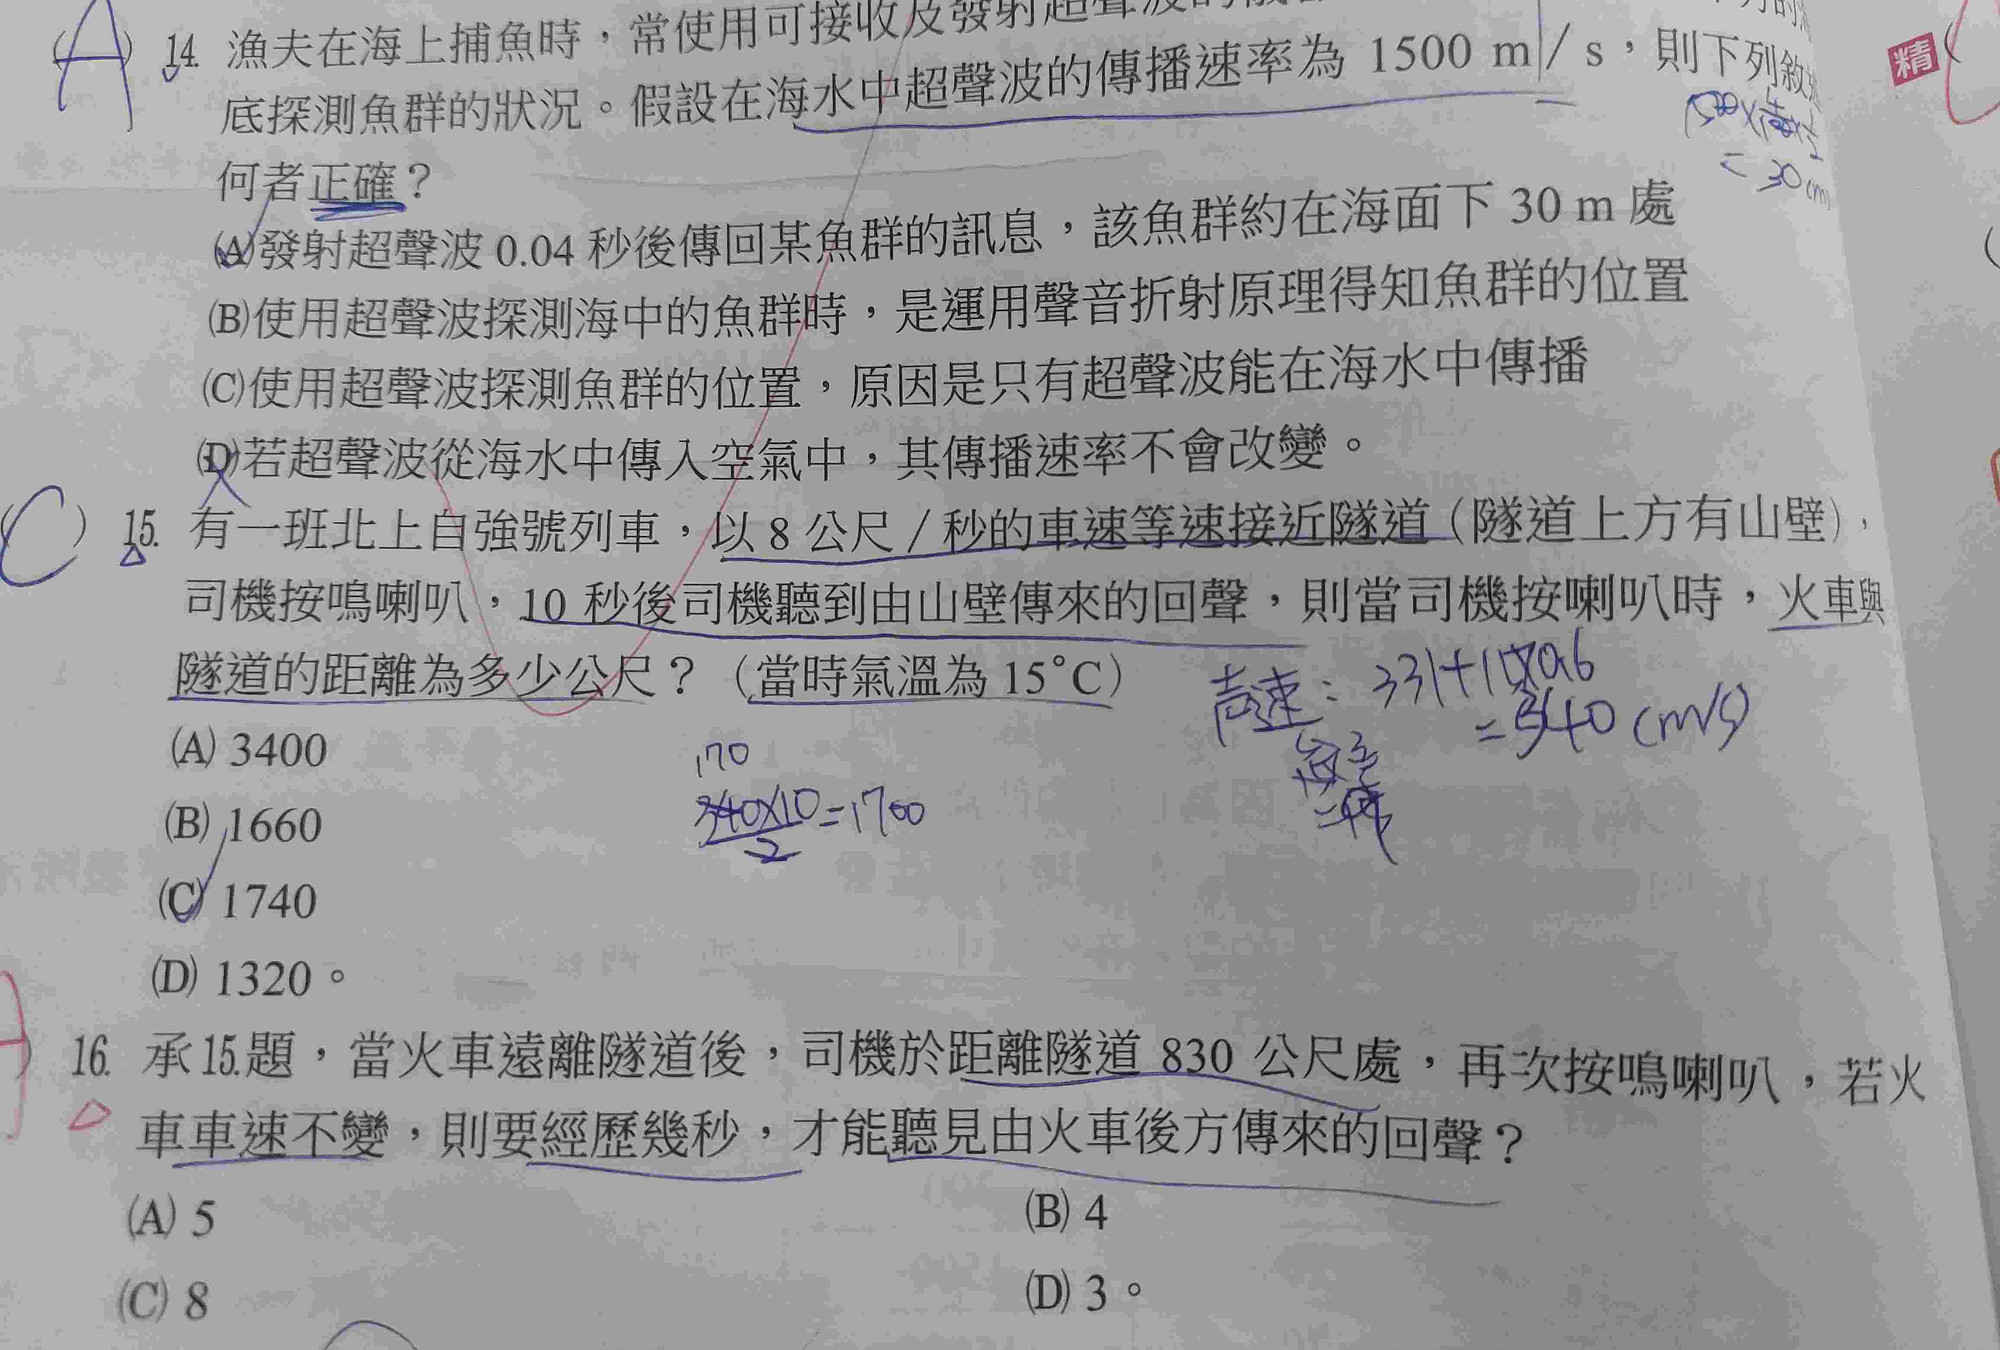 (A) 14. 漁夫在海上捕魚時，常使用可接收及發射超聲波的
底探測魚群的狀況。假設在海水中超聲波的傳播速率為 1500 m / s，則下列敘
何者正確？
= 30 (m)
(A)發射超聲波 0.04 秒後傳回某魚群的訊息，該魚群約在海面下 30 m 處
(B)使用超聲波探測海中的魚群時，是運用聲音折射原理得知魚群的位置
(C)使用超聲波探測魚群的位置，原因是只有超聲波能在海水中傳播
(D)若超聲波從海水中傳入空氣中，其傳播速率不會改變。
(C) 15. 有一班北上自強號列車，以 8 公尺 / 秒的車速等速接近隧道（隧道上方有山壁），
司機按鳴喇叭，10 秒後司機聽到由山壁傳來的回聲，則當司機按喇叭時，火車與
隧道的距離為多少公尺？（當時氣溫為 15°C）
= 340 (m/s)
(A) 3400
170
(B) 1660
340×10/2=1700
(C) 1740
(D) 1320。
16. 承15.題，當火車遠離隧道後，司機於距離隧道 830 公尺處，再次按鳴喇叭，若火
車車速不變，則要經歷幾秒，才能聽見由火車後方傳來的回聲？
(A) 5
(B) 4
(C) 8
(D) 3。
精